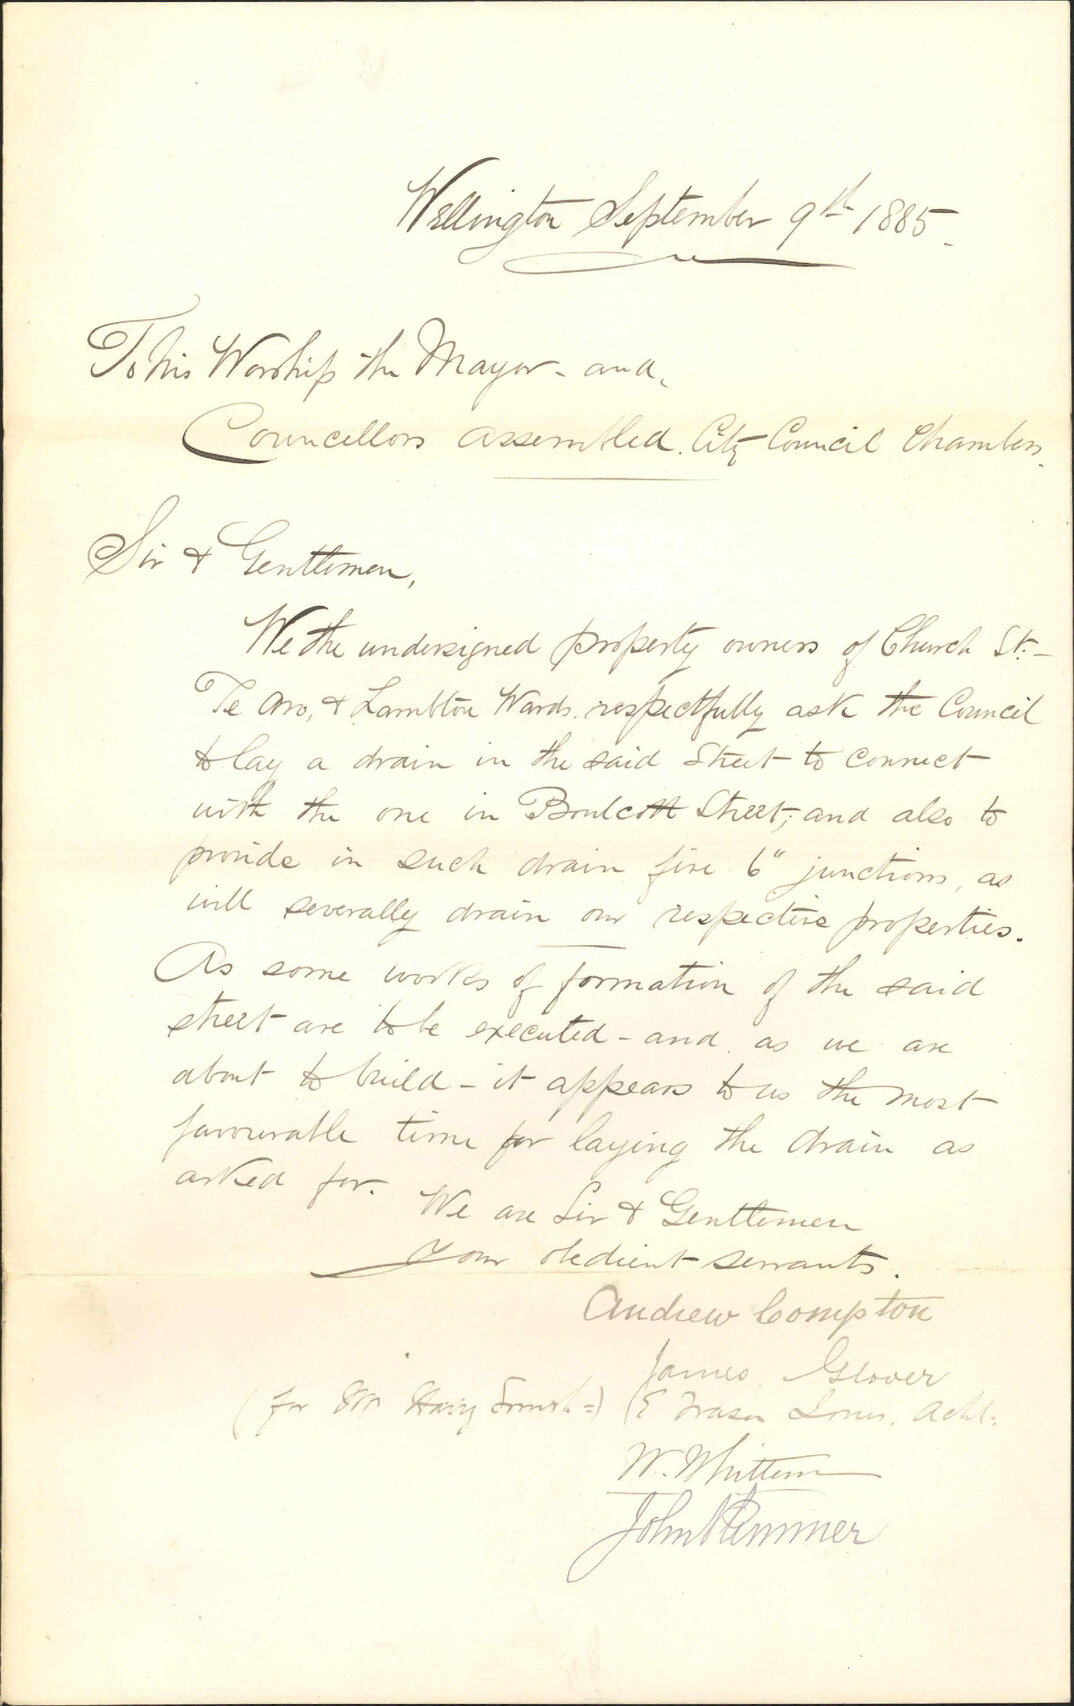 Wellington September 9th 1885.
To his Worship the Mayor - and,
Councellors assembled. City Council Chambers.
Sir & Gentlemen,
We the undersigned property owners of Church St. -
Te Aro, & Lambton Wards. respectfully ask the Council
to lay a drain in the said Street to connect
with the one in Boulcott Street; and also to
provide in such drain five 6" junctions, as
will severally drain our respective properties.
As some works of formation of the said
street are to be executed - and as we are
about to build - it appears to us the most
favourable time for laying the drain as
asked for.
We are Sir & Gentlemen
Your obedient servants.
Andrew Compton
James Glover
(for Mr Harry) (E Fraser Jones. Acht.
W. Whittem
John